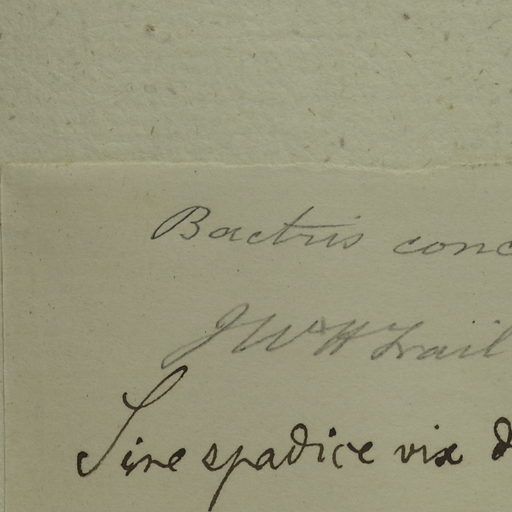 Bactris conc
JWH Trail
Sine spadice vix d